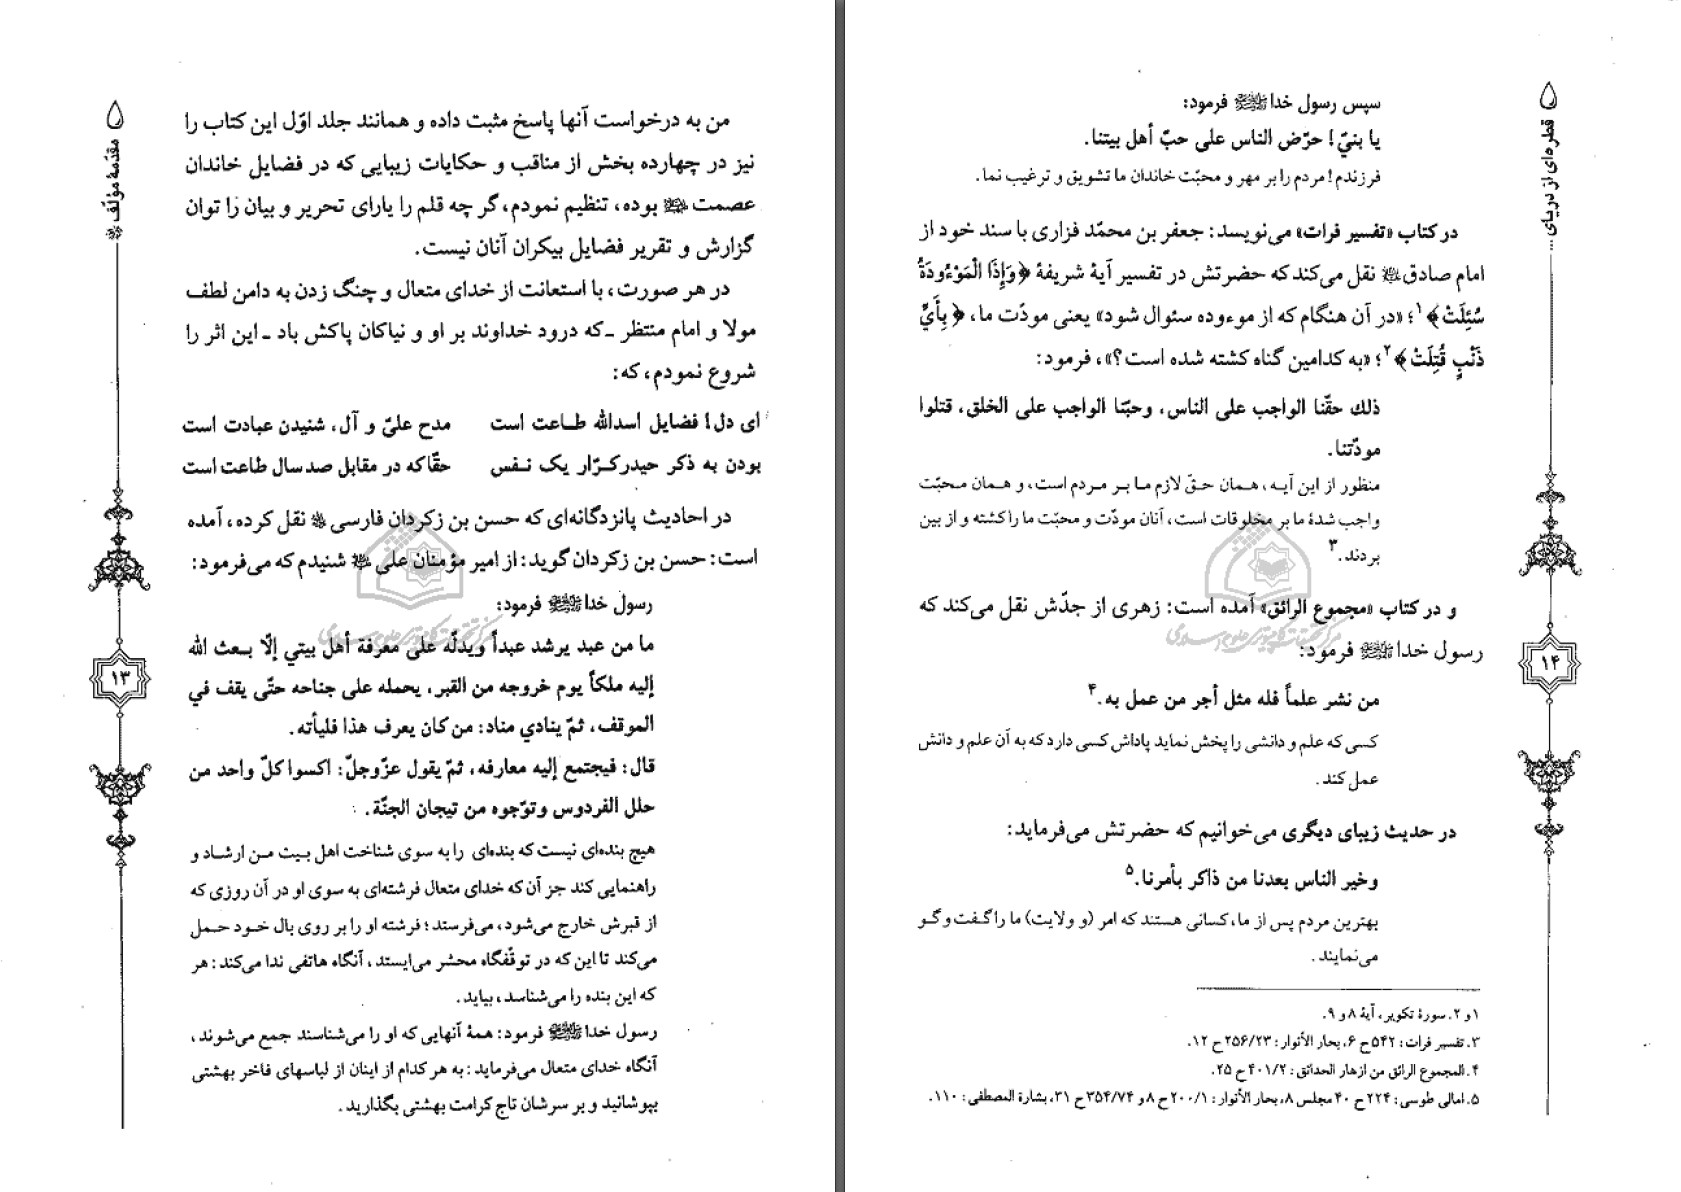 مقدّمهٔ مؤلّف
من به درخواست آنها پاسخ مثبت داده و همانند جلد اوّل این کتاب را
نیز در چهارده بخش از مناقب و حکایات زیبایی که در فضایل خاندان
عصمت علیهم السلام بوده، تنظیم نمودم، گر چه قلم را یارای تحریر و بیان را توان
گزارش و تقریر فضایل بیکران آنان نیست.
در هر صورت، با استعانت از خدای متعال و چنگ زدن به دامن لطف
مولا و امام منتظر ـ که درود خداوند بر او و نیاکان پاکش باد ـ این اثر را
شروع نمودم، که:
ای دل! فضایل اسدالله طـاعت است مدح علیّ و آل، شنیدن عبادت است
بودن به ذکر حیدر کـرّار یک نـفس حقّا که در مقابل صد سال طاعت است
در احادیث پانزدگانه‌ای که حسن بن زکردان فارسی نقل کرده، آمده
است: حسن بن زکردان گوید: از امیر مؤمنان علی علیه السلام شنیدم که می‌فرمود:
رسول خدا صلی الله علیه وآله فرمود:
ما من عبد يرشد عبداً ويدلّه على معرفة أهل بيتي إلّا بـعث الله
إليه ملكاً يوم خروجه من القبر، يحمله على جناحه حتّى يقف في
الموقف، ثمّ ينادي مناد: من كان يعرف هذا فليأته.
قال: فيجتمع إليه معارفه، ثمّ يقول عزّوجلّ: اكسوا كلّ واحد من
حلل الفردوس وتوّجوه من تيجان الجنّة.
هیچ بنده‌ای نیست که بنده‌ای را به سوی شناخت اهل بـیت مـن ارشـاد و
راهنمایی کند جز آن که خدای متعال فرشته‌ای به سوی او در آن روزی که
از قبرش خارج می‌شود، می‌فرستد؛ فرشته او را بر روی بال خـود حـمل
می‌کند تا این که در توقّفگاه محشر می‌ایستد، آنگاه هاتفی ندا می‌کند: هر
که این بنده را می‌شناسد، بیاید.
رسول خدا صلی الله علیه وآله فرمود: همهٔ آنهایی که او را می‌شناسند جمع می‌شوند،
آنگاه خدای متعال می‌فرماید: به هر کدام از اینان از لباسهای فاخر بهشتی
بپوشانید و بر سرشان تاج کرامت بهشتی بگذارید.
۱۳
قطره‌ای از دریای ...
سپس رسول خدا صلی الله علیه وآله فرمود:
يا بنيّ! حرّض الناس على حبّ أهل بيتنا.
فرزندم! مردم را بر مهر و محبّت خاندان ما تشویق و ترغیب نما.
در کتاب «تفسیر فرات» می‌نویسد: جعفر بن محمّد فزاری با سند خود از
امام صادق علیه السلام نقل می‌کند که حضرتش در تفسیر آیهٔ شریفهٔ ﴿وَإِذَا الْمَوْءُودَةُ
سُئِلَتْ﴾۱؛ «در آن هنگام که از موءوده سئوال شود» یعنی مودّت ما، ﴿بِأَيِّ
ذَنْبٍ قُتِلَتْ﴾۲؛ «به کدامین گناه کشته شده است؟»، فرمود:
ذلك حقّنا الواجب على الناس، وحبّنا الواجب على الخلق، قتلوا
مودّتنا.
منظور از این آیـه، هـمان حـقّ لازم مـا بـر مـردم است، و هـمان مـحبّت
واجب شدهٔ ما بر مخلوقات است، آنان مودّت و محبّت ما را کشته و از بین
بردند.۳
و در کتاب «مجموع الرائق» آمده است: زهری از جدّش نقل می‌کند که
رسول خدا صلی الله علیه وآله فرمود:
من نشر علماً فله مثل أجر من عمل به.۴
کسی که علم و دانشی را پخش نماید پاداش کسی دارد که به آن علم و دانش
عمل کند.
در حدیث زیبای دیگری می‌خوانیم که حضرتش می‌فرماید:
وخير الناس بعدنا من ذاكر بأمرنا.۵
بهترین مردم پس از ما، کسانی هستند که امر (و ولایت) ما را گـفت و گـو
می‌نمایند.
۱ و ۲. سورهٔ تکویر، آیهٔ ۸ و ۹.
۳. تفسیر فرات: ۵۴۲ ح ۶، بحار الأنوار: ۲۵۶/۲۳ ح ۱۲.
۴. المجموع الرائق من ازهار الحدائق: ۴۰۱/۲ ح ۲۵.
۵. امالی طوسی: ۲۲۴ ح ۴۰ مجلس ۸، بحار الأنوار: ۲۰۰/۱ ح ۸ و ۳۵۴/۷۴ ح ۳۱، بشارة المصطفی: ۱۱۰.
۱۴